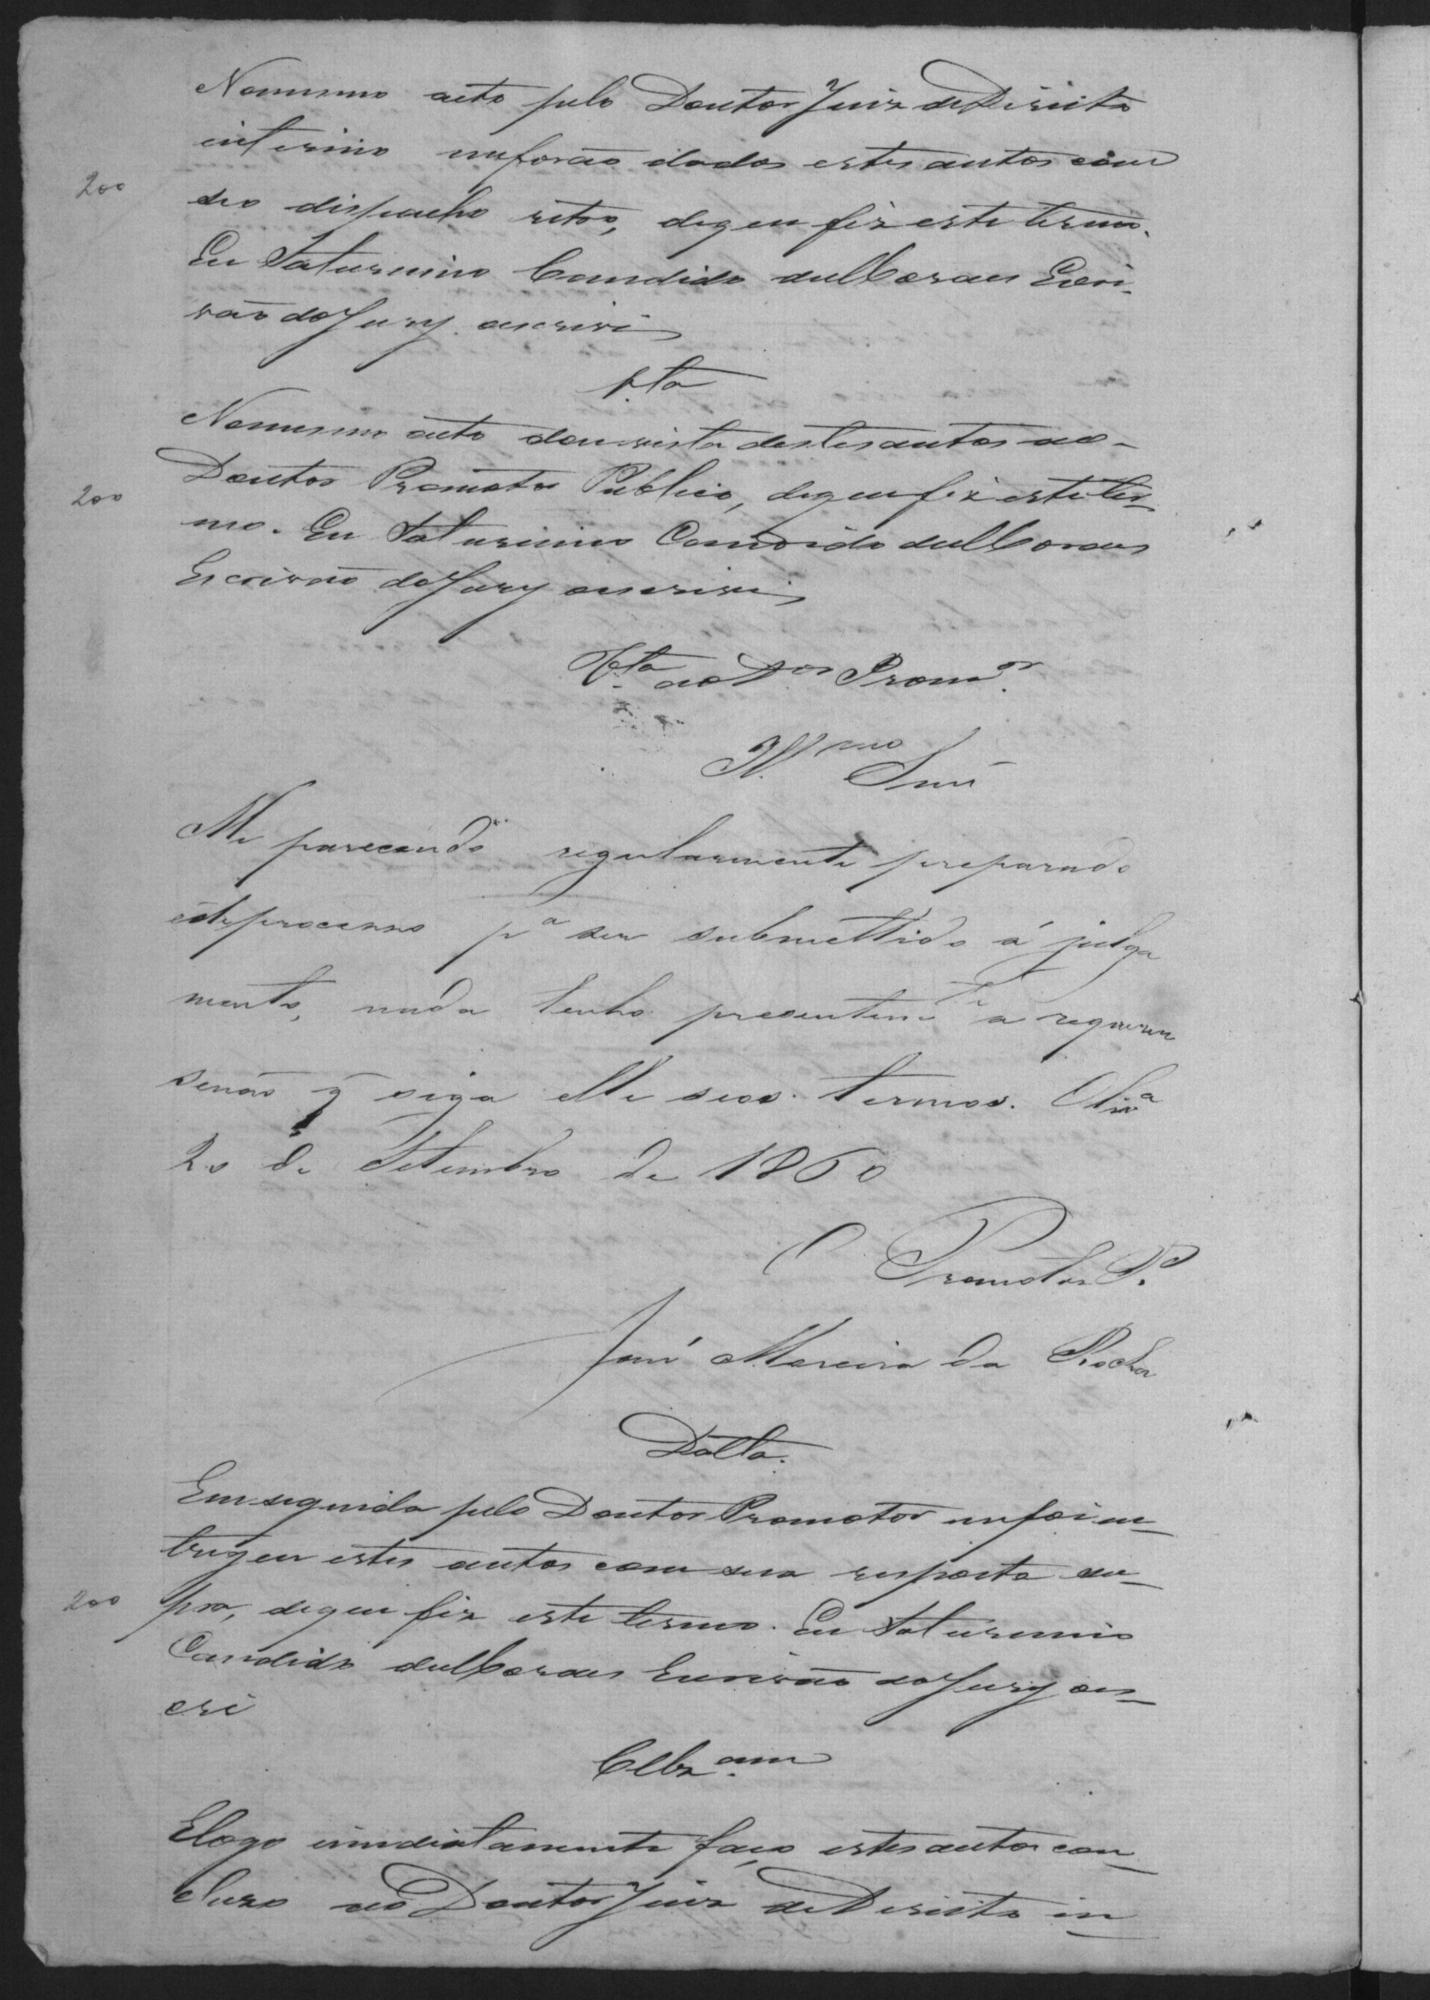 No mesmo acto pelo Doutor Juiz de Direito
interino me forão dados estes autos com
200
seo despacho retro, do que fiz este termo.
Eu Saturnino Candido de Moraes Escri-
vão do Jury escrivi
V.ta
No mesmo acto dou vista destes autos ao
Doutor Promotor Publico, do que fiz este ter-
200
mo. Eu Saturnino Candido de Moraes
Escrivão do Jury escrivi
V.ta ao D.or Prom.or
Ill.mo Snr
Me parecendo regularmente preparado
este processo p.a ser submettido á julga
mento, nada tenho presentem.te a requerer
senão q̃ siga elle seos termos.
20 de Setembro de 1860
O Promotor P.o
José Moreira da Rocha
Datta.
Em seguida pelo Doutor Promotor me foi en-
tregue estes autos com sua resposta su-
200
pra, do que fiz este termo. Eu Saturnino
Candido de Moraes Escrivão do Jury es-
crivi
Clz.am
E logo immediatamente faço estes autos con-
cluzo ao Doutor Juiz de Direito in